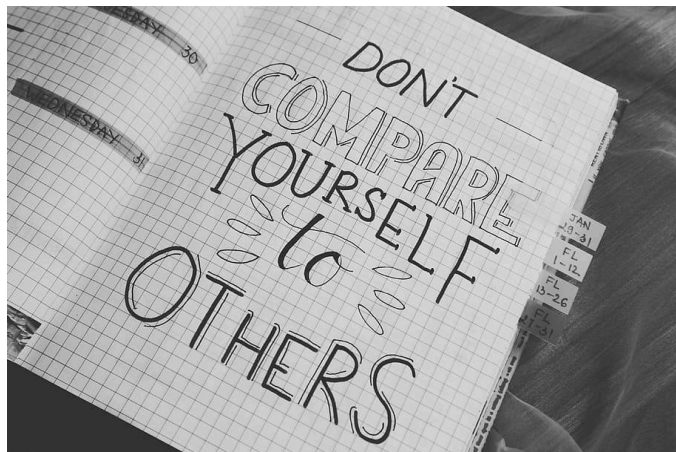 TUESDAY 30
WEDNESDAY 31
DON'T
COMPARE
YOURSELF
to
OTHERS
JAN
28-31
FL
1-12
FL
13-26
FL
27-31